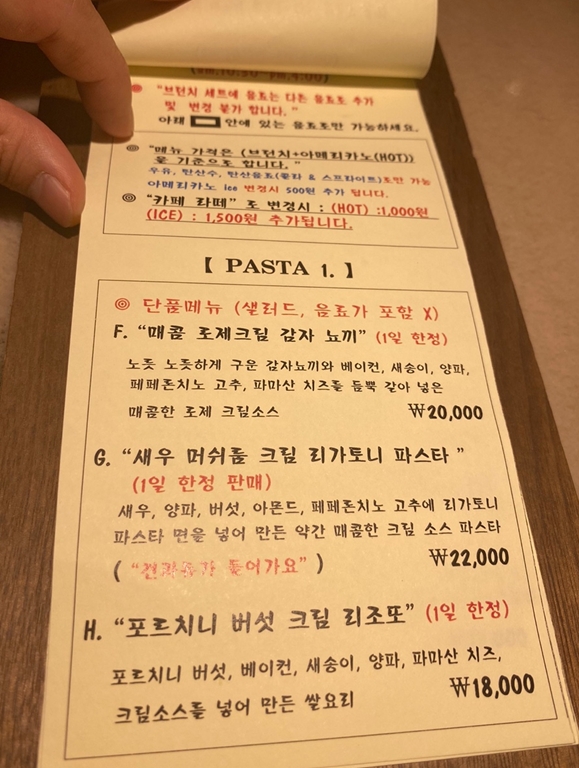 (AM.10:30~PM.4:00)
"브런치 세트에 음료는 다른 음료로 추가
및 변경 불가 합니다."
아래 안에 있는 음료로만 가능하세요.
◎ "메뉴 가격은 (브런치+아메리카노(HOT))
로 기준으로 합니다."
우유, 탄산수, 탄산음료(콜라 & 스프라이트)로만 가능
아메리카노 Ice 변경시 500원 추가 됩니다.
◎ "카페 라떼" 로 변경시 : (HOT) :1,000원
(ICE) : 1,500원 추가됩니다.
【 PASTA 1. 】
◎ 단품메뉴 (샐러드, 음료가 포함 X)
F. "매콤 로제크림 감자 뇨끼" (1일 한정)
노릇 노릇하게 구운 감자뇨끼와 베이컨, 새송이, 양파,
페페론치노 고추, 파마산 치즈를 듬뿍 갈아 넣은
매콤한 로제 크림소스 ₩20,000
G. "새우 머쉬룸 크림 리가토니 파스타 "
(1일 한정 판매)
새우, 양파, 버섯, 아몬드, 페페론치노 고추에 리가토니
파스타 면을 넣어 만든 약간 매콤한 크림 소스 파스타
( "견과류가 들어가요" ) ₩22,000
H. "포르치니 버섯 크림 리조또" (1일 한정)
포르치니 버섯, 베이컨, 새송이, 양파, 파마산 치즈,
크림소스를 넣어 만든 쌀요리 ₩18,000